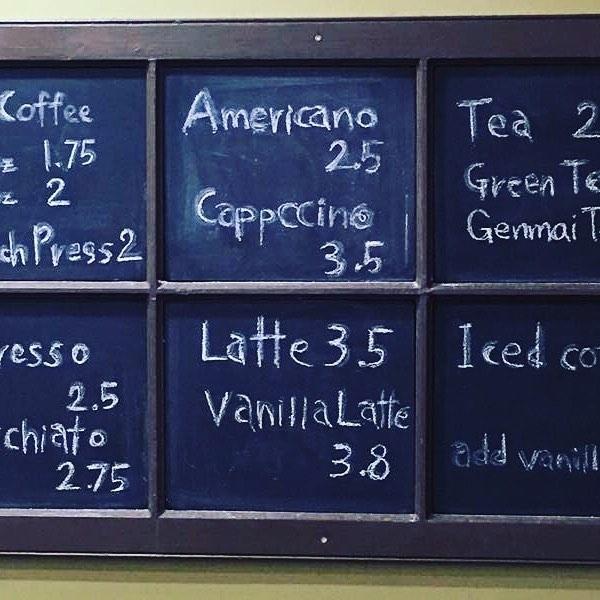 Coffee
z 1.75
z 2
ch Press 2
Americano
2.5
Cappccino
3.5
Tea 2
Green Te
Genmai T
resso
2.5
chiato
2.75
Latte 3.5
Vanilla Latte
3.8
Iced co
add vanill